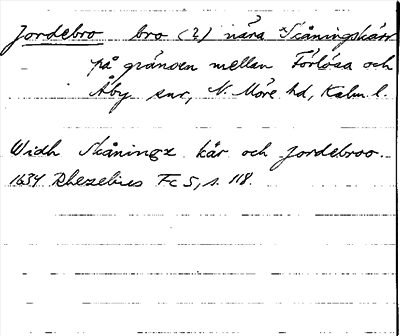 Jordebro bro (?) nära *Skåningskärr
på gränsen mellan Förlösa och
Åby snr, N. Möre hd, Kalm l.
Widh Skåningz kär och Jordebroo.
1634 Rhezelius Fc 5, s. 118.